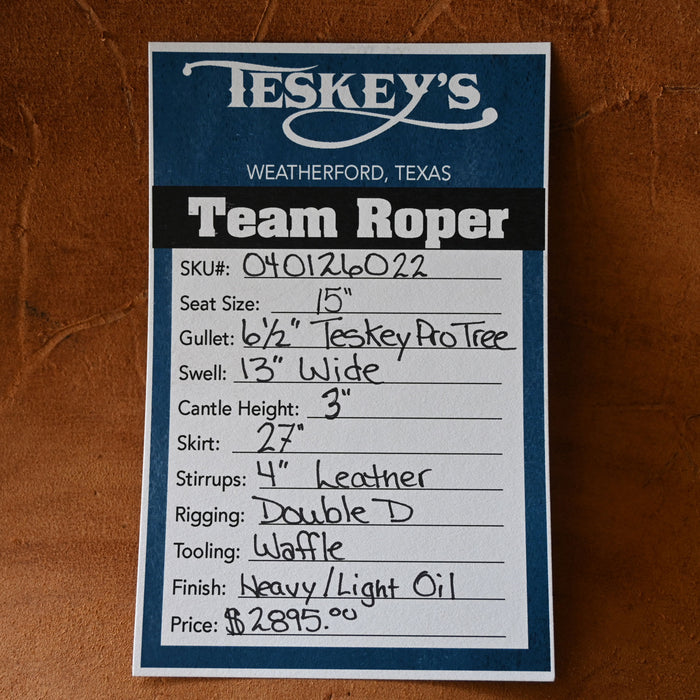 TESKEY'S
WEATHERFORD, TEXAS
Team Roper
SKU#: 040126022
Seat Size: 15"
Gullet: 6½" Teskey Pro Tree
Swell: 13" Wide
Cantle Height: 3"
Skirt: 27"
Stirrups: 4" Leather
Rigging: Double D
Tooling: Waffle
Finish: Heavy/Light Oil
Price: $2895.00